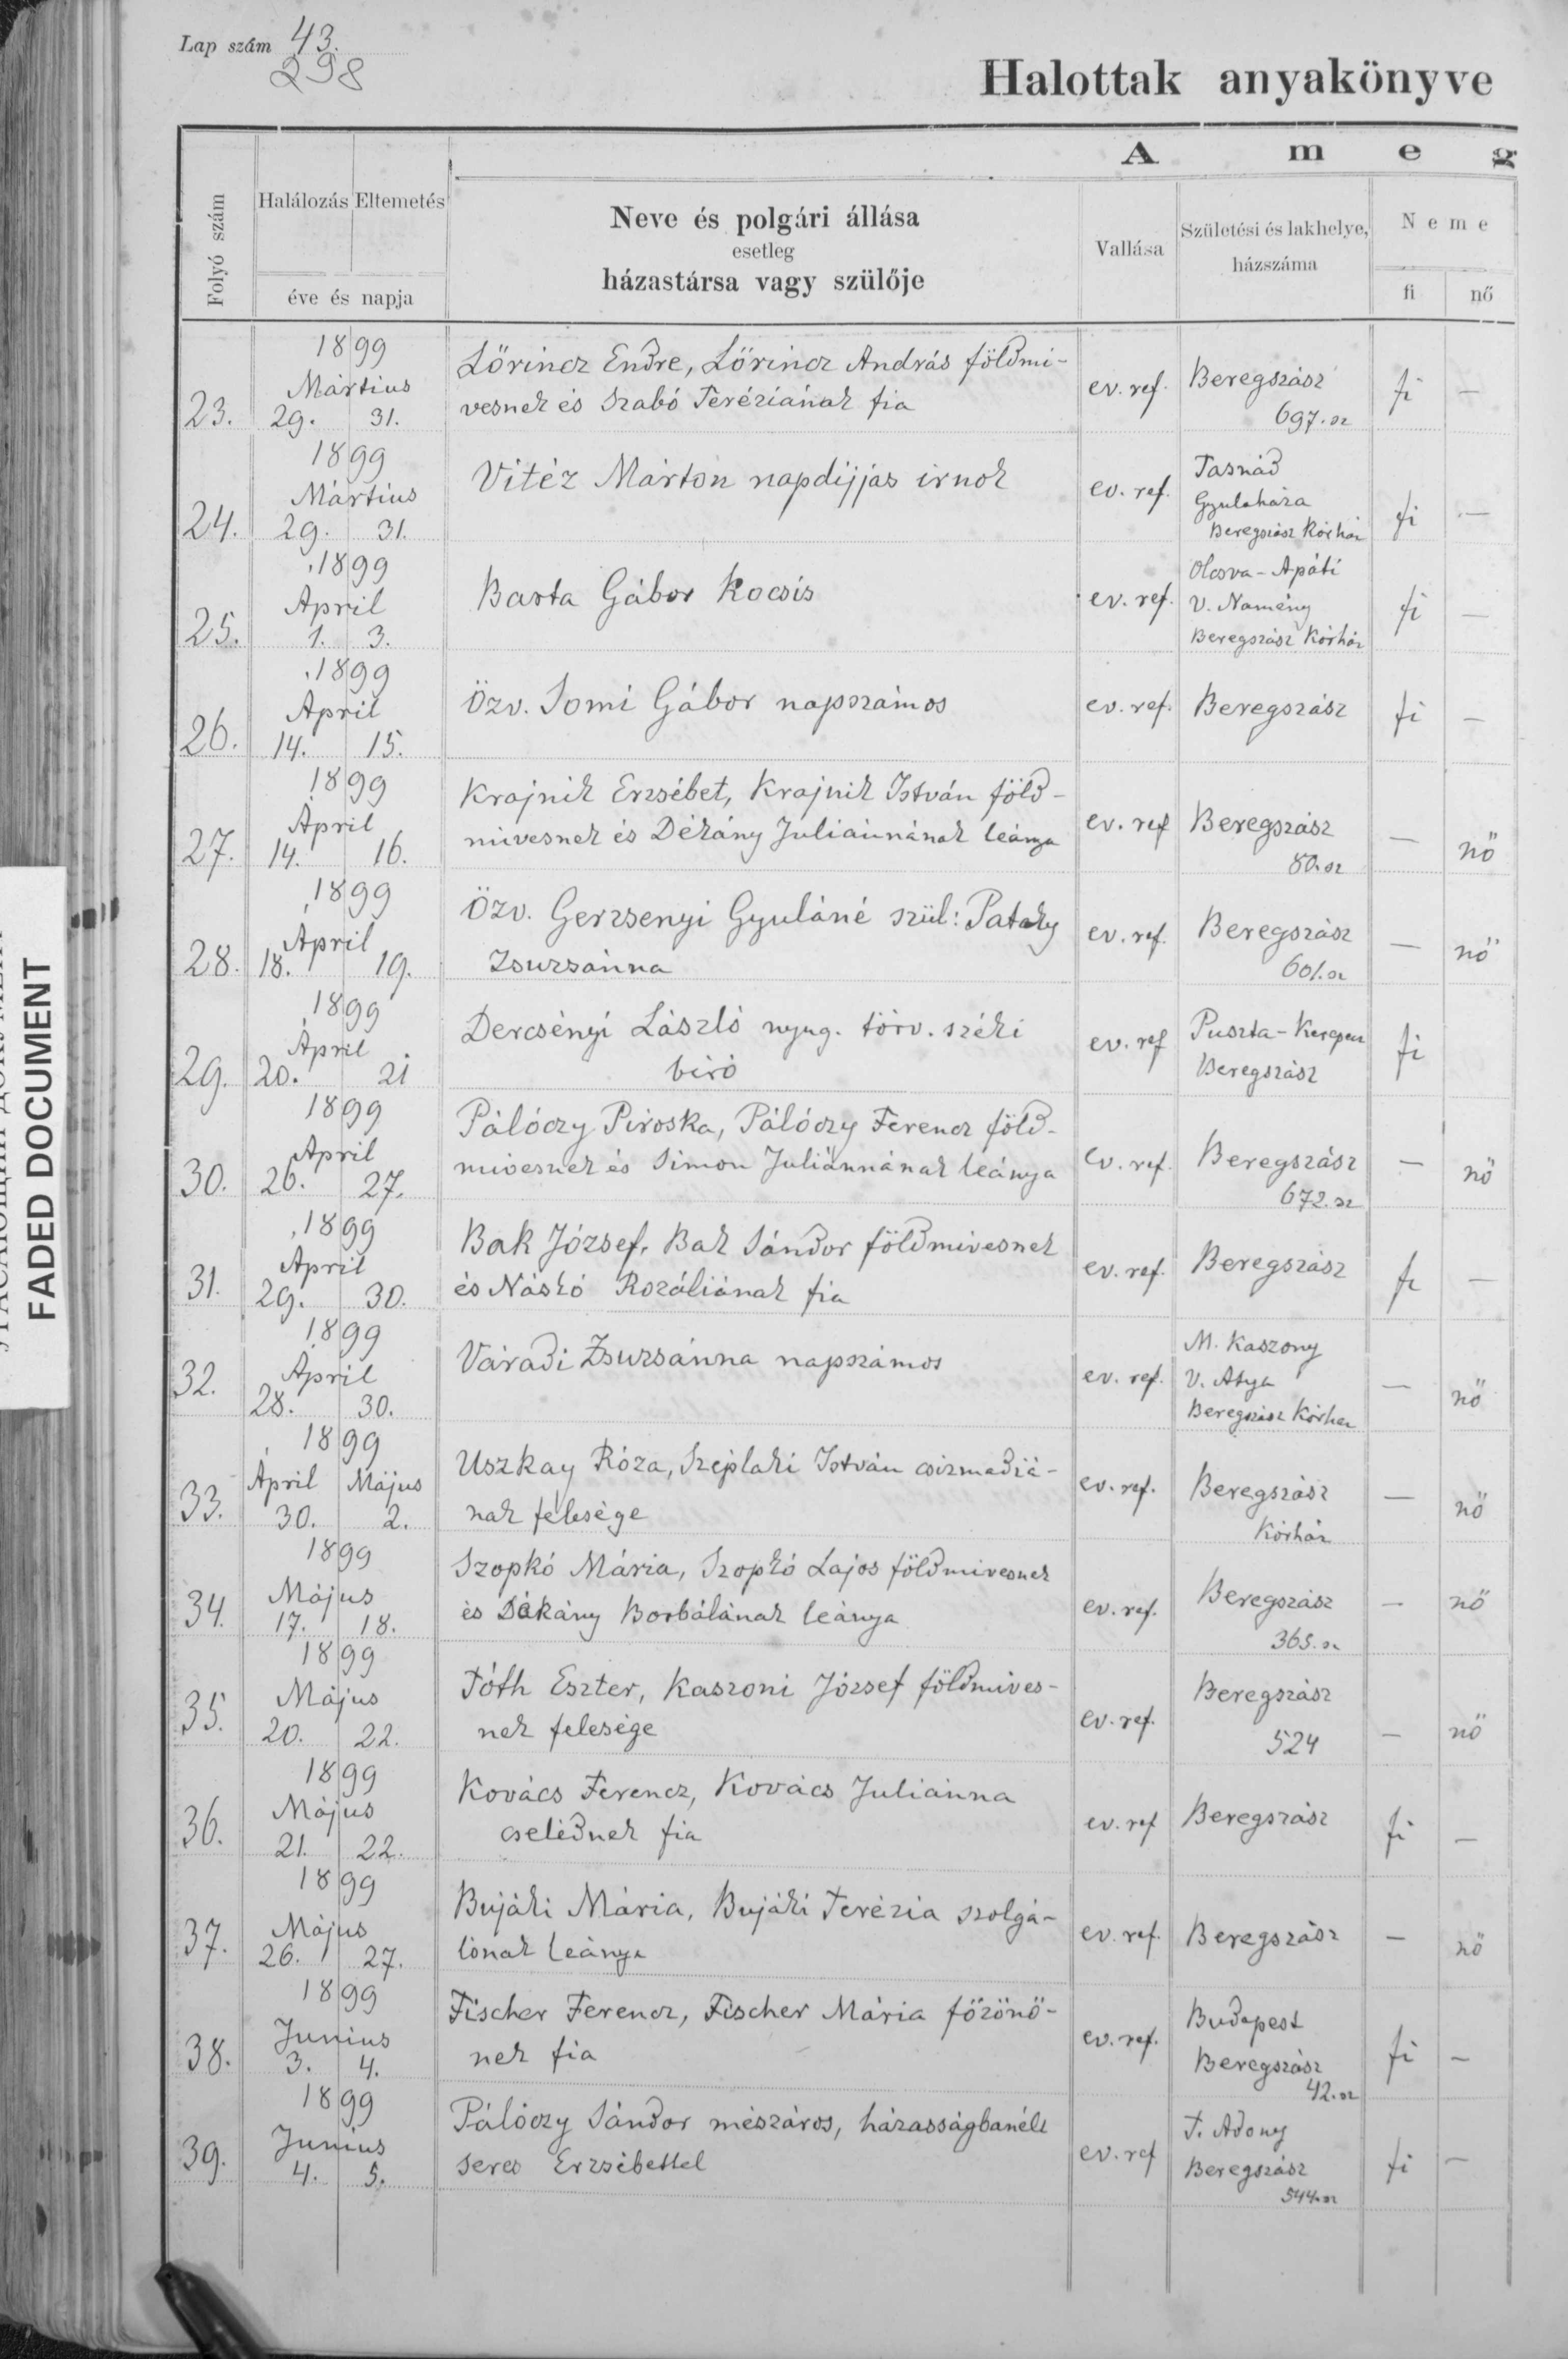 Lap szám 43.
298
Halottak anyakönyve
A m e g
Folyó szám
Halálozás Eltemetés
éve és napja
Neve és polgári állása
esetleg
házastársa vagy szülője
Vallása
Születési és lakhelye,
házszáma
Neme
fi nő
1899
Mártius
23. 29. 31.
Lőrincz Endre, Lőrincz András földmi-
vesnek és Szabó Teréziának fia
ev. ref.
Beregszász
697. sz
fi —
1899
Mártius
24. 29. 31.
Vitéz Márton napdijjas irnok
ev. ref.
Tasnád
Gyulaháza
Beregszász Kórház
fi —
1899
April
25. 1. 3.
Barta Gábor Kocsis
ev. ref.
Olcsva-Apáti
V. Namény
Beregszász Kórház
fi —
1899
April
26. 14. 15.
Özv. Somi Gábor napszámos
ev. ref.
Beregszász
fi —
1899
April
27. 14. 16.
Krajnik Erzsébet, Krajnik István föld-
mivesnek és Dékány Juliánnának leánya
ev. ref
Beregszász
80. sz
— nő
1899
April
28. 18. 19.
Özv. Gerzsenyi Gyuláné szül: Pataky
Zsuzsánna
ev. ref.
Beregszász
601. sz
— nő
1899
April
29. 20. 21
Dercsényi László nyug. törv. széki
biró
ev. ref
Puszta-Kerepecz
Beregszász
fi
1899
April
30. 26. 27.
Pálóczy Piroska, Pálóczy Ferencz föld-
mivesnek és Simon Juliánnának leánya
ev. ref.
Beregszász
672. sz
— nő
1899
April
31. 29. 30.
Bak József, Bak Sándor földmivesnek
és Náskó Rozáliának fia
ev. ref.
Beregszász
fi —
1899
April
32. 28. 30.
Váradi Zsuzsánna napszámos
ev. ref.
M. Kaszony
V. Atya
Beregszász Kórház
— nő
1899
April Május
33. 30. 2.
Uszkay Róza, Széplaki István csizmadiá-
nak felesége
ev. ref.
Beregszász
Kórház
— nő
1899
Május
34. 17. 18.
Szopkó Mária, Szopkó Lajos földmivesnek
és Dékány Borbálának leánya
ev. ref.
Beregszász
365. sz
— nő
1899
Május
35. 20. 22.
Tóth Eszter, Kaszoni József földmives-
nek felesége
ev. ref.
Beregszász
524
— nő
1899
Május
36. 21. 22.
Kovács Ferencz, Kovács Juliánna
cselédnek fia
ev. ref
Beregszász
fi —
1899
Május
37. 26. 27.
Bujáki Mária, Bujáki Terézia szolgá-
lónak leánya
ev. ref.
Beregszász
— nő
1899
Junius
38. 3. 4.
Fischer Ferencz, Fischer Mária főzőnő-
nek fia
ev. ref.
Budapest
Beregszász
42. sz
fi —
1899
Junius
39. 4. 5.
Pálóczy Sándor mészáros, házasságbanélt
Seres Erzsébettel
ev. ref
T. Adony
Beregszász
544. sz
fi —
FADED DOCUMENT